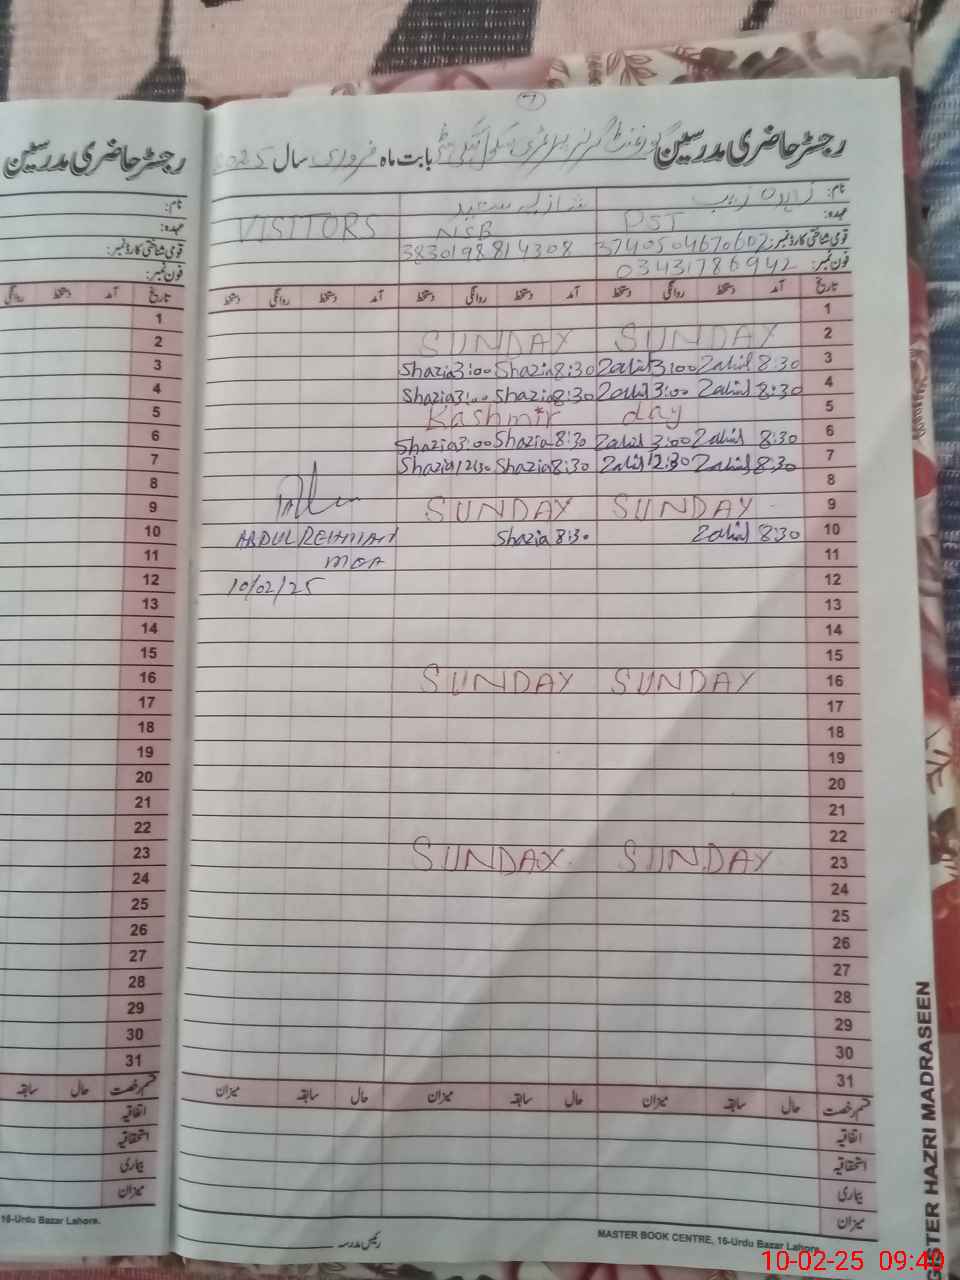 رجسٹر حاضری مدرسین
نام:
عہدہ:
قومی شناختی کارڈ نمبر:
فون نمبر:
روانگی دستخط آمد دستخط تاریخ
1
2
3
4
5
6
7
8
9
10
11
12
13
14
15
16
17
18
19
20
21
22
23
24
25
26
27
28
29
30
31
سابقہ حال قسم رخصت
اتفاقیہ
استحقاقیہ
بیماری
میزان
16-Urdu Bazar Lahore.
7
رجسٹر حاضری مدرسین گورنمنٹ گرلز پرائمری سکول بابت ماہ فروری سال 2025
نام: زاہدہ زیب شازیہ سعید
عہدہ: PST NSB VISITORS
قومی شناختی کارڈ نمبر: 3740504670602 3830198814308
فون نمبر: 03431786942
تاریخ آمد دستخط روانگی دستخط آمد دستخط روانگی دستخط آمد دستخط روانگی دستخط
1
SUNDAY SUNDAY 2
Shazia 3:00 Shazia 8:30 Zahid 3:00 Zahid 8:30 3
Shazia 3:00 Shazia 8:30 Zahid 3:00 Zahid 8:30 4
Kashmir day 5
Shazia 3:00 Shazia 8:30 Zahid 3:00 Zahid 8:30 6
Shazia 12:30 Shazia 8:30 Zahid 12:30 Zahid 8:30 7
8
SUNDAY SUNDAY 9
ABDUL REHMAN Shazia 8:30 Zahid 8:30 10
MEA 11
10/02/25 12
13
14
15
SUNDAY SUNDAY 16
17
18
19
20
21
22
SUNDAY SUNDAY 23
24
25
26
27
28
29
30
31
قسم رخصت حال سابقہ میزان حال سابقہ میزان حال سابقہ میزان
اتفاقیہ
استحقاقیہ
بیماری
میزان
رئیس مدرسہ
MASTER BOOK CENTRE, 16-Urdu Bazar Lahore.
GISTER HAZRI MADRASEEN
10-02-25 09:40